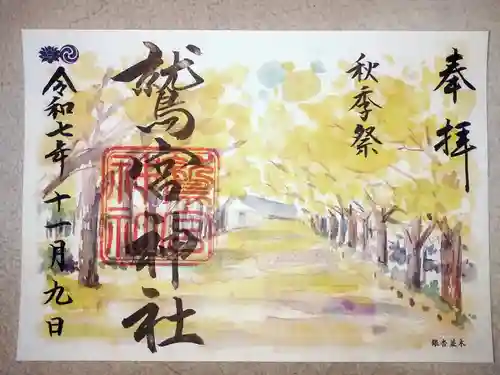 奉拝
秋季祭
鷲宮神社
鷲宮
神社
令和七年十一月九日
銀杏並木